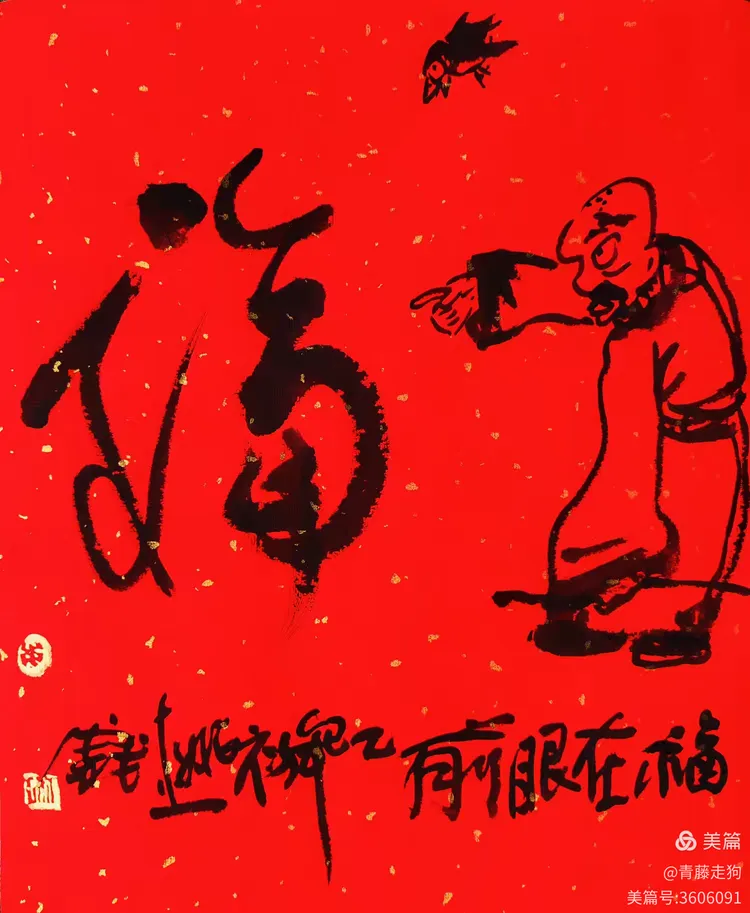 福
福在眼前 乙巳年初
美篇
@青藤走狗
美篇号:3606091